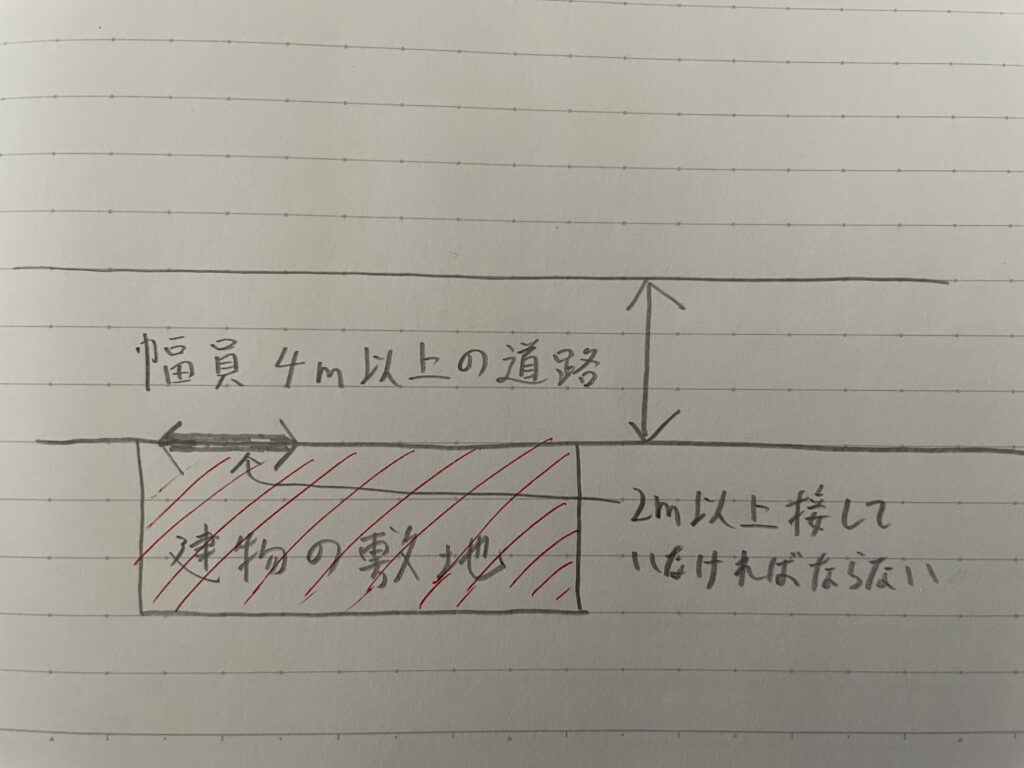 幅員 4m以上の道路
2m以上接して
いなければならない
建物の敷地